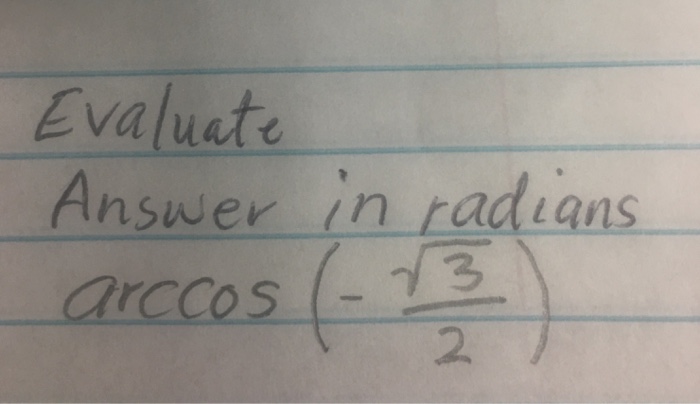 Evaluate
Answer in radians
arccos (-√3/2)